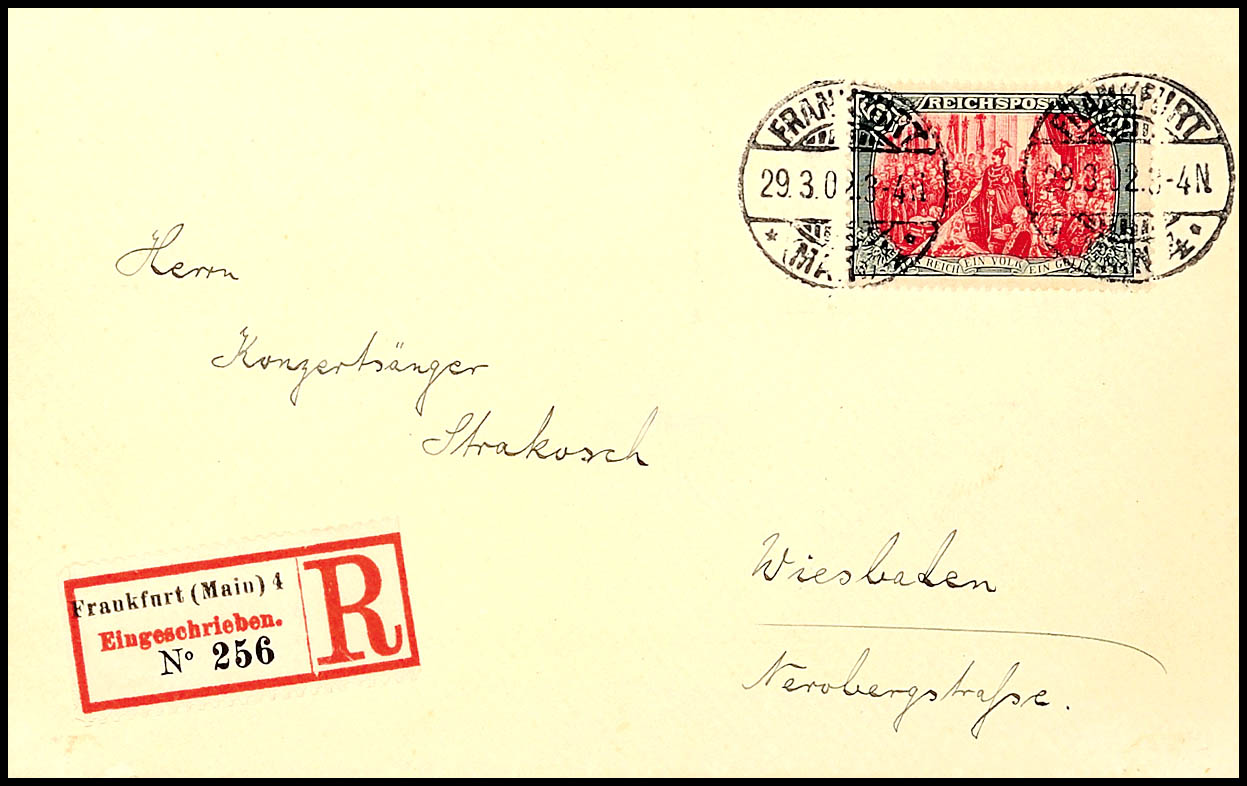 REICHSPOST
FRANKFURT
29.3.02.3-4N
(MAIN)
FRANKFURT
29.3.02.3-4N
REICH EIN VOLK EIN GOTT
Herrn
Konzertsänger
Strakosch
Wiesbaden
Nerobergstraſse.
Frankfurt (Main) 4
Eingeschrieben.
No 256
R